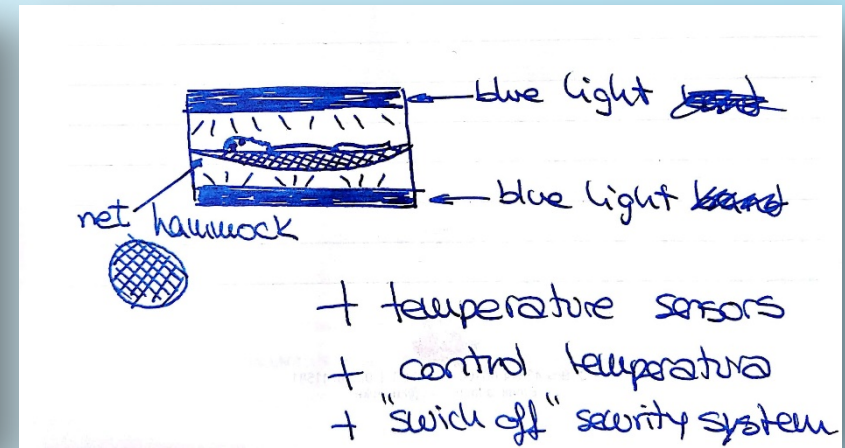 blue light
blue light
net hammock
+ temperature sensors
+ control temperatura
+ "swich off" security system